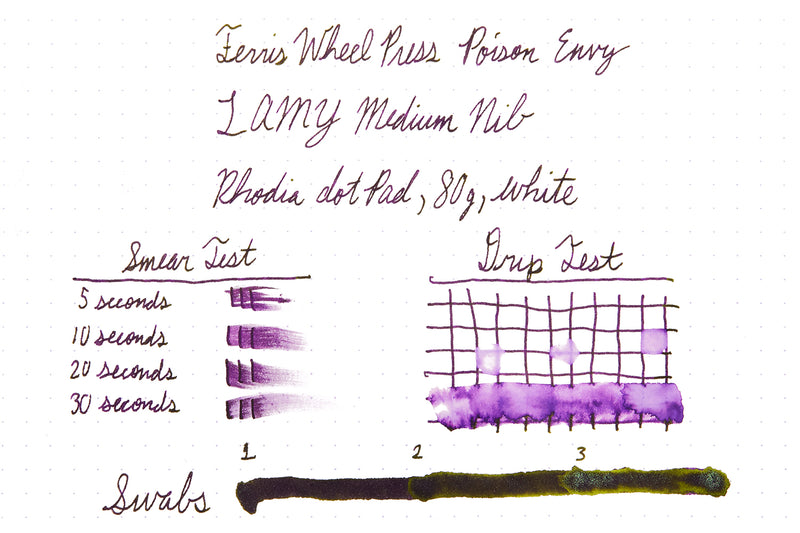 Ferris Wheel Press Poison Envy
LAMY Medium Nib
Rhodia dot Pad, 80g, white
Smear Test
5 seconds
10 seconds
20 seconds
30 seconds
Drip Test
1 2 3
Swabs